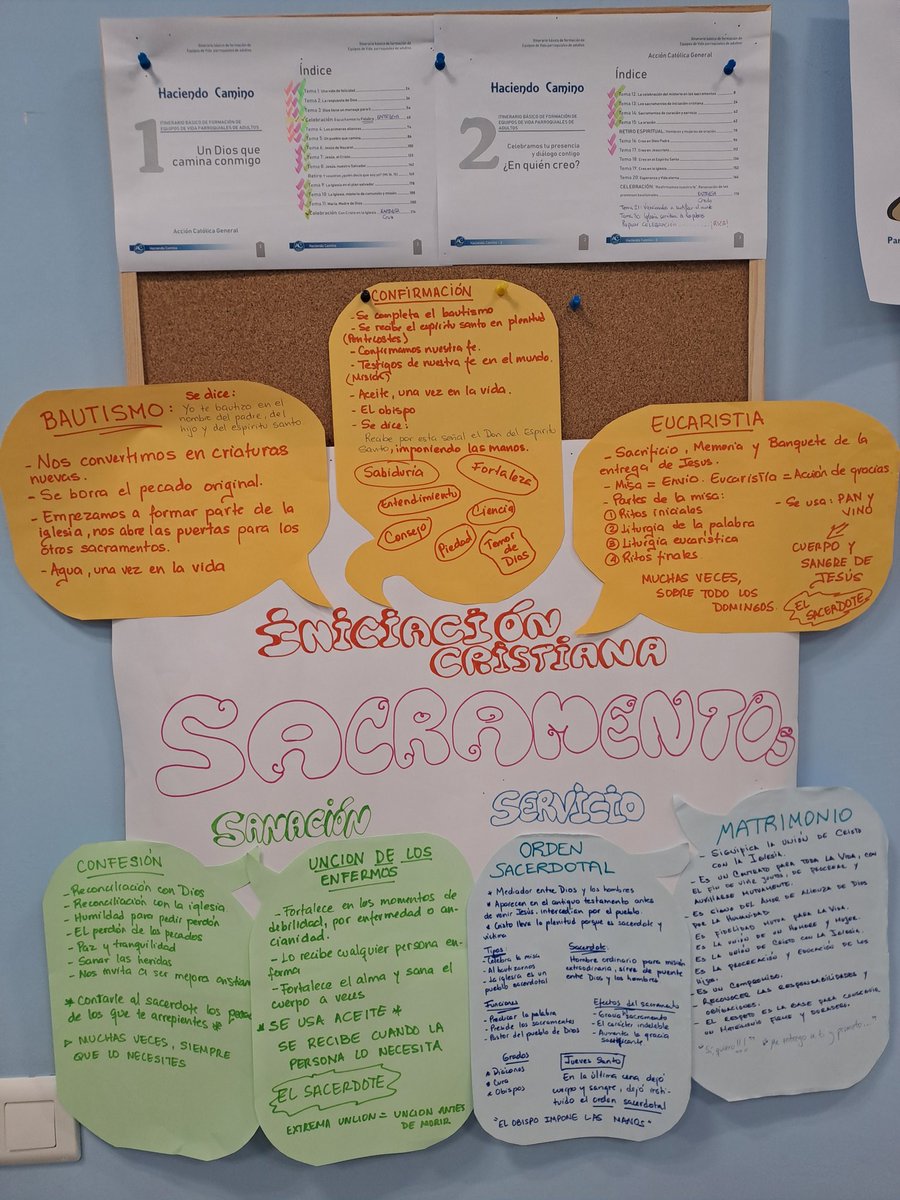 Itinerario básico de formación de
Equipos de Vida parroquiales de adultos
Haciendo Camino
1
ITINERARIO BÁSICO DE FORMACIÓN DE
EQUIPOS DE VIDA PARROQUIALES DE ADULTOS
Un Dios que
camina conmigo
Acción Católica General
Haciendo Camino
Índice
Tema 1: Una vida de felicidad
Tema 2: La respuesta de Dios
Tema 4: Los primeros alianzas
Tema 5: Un pueblo que camina
Tema 6: Jesús de Nazaret
Tema 7: Jesús, el Cristo
Tema 8: Jesús, nuestro Salvador
Tema 9: La Iglesia en el plan salvador
Tema 10: La Iglesia, misterio de comunión y misión
Tema 11: María, Madre de Dios
Celebración: Con Cristo en la Iglesia
Haciendo Camino
Itinerario básico de formación de
Equipos de Vida parroquiales de adultos
Acción Católica General
Haciendo Camino
2
ITINERARIO BÁSICO DE FORMACIÓN DE
EQUIPOS DE VIDA PARROQUIALES DE
ADULTOS
Celebramos tu presencia
y diálogo contigo
¿En quién creo?
Haciendo Camino
Índice
Tema 12: La celebración del misterio en los sacramentos
Tema 13: Los sacramentos de iniciación cristiana
Tema 14: Sacramentos de curación y servicio
Tema 15: La oración
RETIRO ESPIRITUAL:
Tema 16: Creo en Dios Padre
Tema 17: Creo en Jesucristo
Tema 18: Creo en el Espíritu Santo
Tema 19: Creo en la Iglesia
Tema 20: Esperanza y Vida eterna
Haciendo Camino - 2
CONFIRMACIÓN
- Se completa el bautismo
- Se recibe el espíritu santo en plenitud
(Pentecostes)
- Confirmamos nuestra fe.
- Testigos de nuestra fe en el mundo.
(Misión)
- Aceite, una vez en la vida.
- El obispo
- Se dice:
Recibe por esta señal el Don del Espiritu
Santo, imponiendo las manos.
Sabiduría
Fortaleza
Entendimiento
Ciencia
Consejo
Piedad
Temor
de
Dios
BAUTISMO:
Se dice:
Yo te bautizo en el
nombre del padre, del
hijo y del espiritu santo
- Nos convertimos en criaturas
nuevas.
- Se borra el pecado original.
- Empezamos a formar parte de la
iglesia, nos abre las puertas para los
otros sacramentos.
- Agua, una vez en la vida
EUCARISTIA
- Sacrificio, Memoria y Banquete de la
entrega de Jesus.
- Misa = Envio. Eucaristia = Acción de gracias.
- Partes de la misa:
① Ritos iniciales
② Liturgia de la palabra
③ Liturgia eucarística
④ Ritos finales
- Se usa: PAN y
VINO
CUERPO Y
SANGRE DE
JESÚS
MUCHAS VECES,
SOBRE TODO LOS
DOMINGOS
EL
SACERDOTE
INICIACIÓN
CRISTIANA
SACRAMENTOS
SANACIÓN
SERVICIO
CONFESIÓN
- Reconciliación con Dios
- Reconciliación con la iglesia
- Humildad para pedir perdón
- El perdón de los pecados
- Paz y tranquilidad
- Sanar las heridas
- Nos invita a ser mejora
* Contarle al sacerdote los
de los que te arrepientes *
▷ MUCHAS VECES, SIEMPRE
QUE LO NECESITES
UNCION DE LOS
ENFERMOS
- Fortalece en los momentos de
debilidad, por enfermedad o an-
cianidad.
- Lo recibe cualquier persona en-
ferma
- Fortalece el alma y sana el
cuerpo a veces
* SE USA ACEITE *
SE RECIBE CUANDO LA
PERSONA LO NECESITA
EL SACERDOTE
EXTREMA UNCION = UNCION ANTES
DE MORIR
ORDEN
SACERDOTAL
* Mediador entre Dios y los hombres
* Aparecen en el antiguo testamento antes
de venir Jesús. intercedían por el pueblo.
* Cristo lleva la plenitud porque es sacerdote y
victima
Tipos:
- Celebra la misa
- La iglesia es un
pueblo sacerdotal
Sacerdote:
Hombre ordinario para misión
extraordinaria, sirve de puente
entre Dios y los hombres
Funciones
- Predicar la palabra
- Preside los sacramentos
- Pastor del pueblo de Dios
Efectos del sacramento
- Gracia sacramento
- El carácter indeleble
- Aumenta la gracia
santificante
Grados
* Diaconos
* Cura
* Obispos
Jueves Santo
En la última cena dejó
cuerpo y sangre, dejó insti-
tuido el orden sacerdotal
"EL OBISPO IMPONE LAS MANOS"
MATRIMONIO
- Significa la unión de Cristo
con la Iglesia.
- Es un Contrato para toda la Vida, con
el fin de vivir juntos, de procrear y
auxiliarse mutuamente.
- Es signo del amor de alianza de Dios
por la Humanidad
- Es fidelidad mutua para la Vida.
Es la unión de un Hombre y Mujer.
Es la unión de Cristo con la Iglesia.
Es la procreación y educación de los
hijos.
- Es un Compromiso.
- Reconocer las Responsabilidades y
obligaciones.
- El respeto es la base para conservar
un Matrimonio firme y duradero.
"Si quiero!!!" "Me entrego a ti y prometo..."